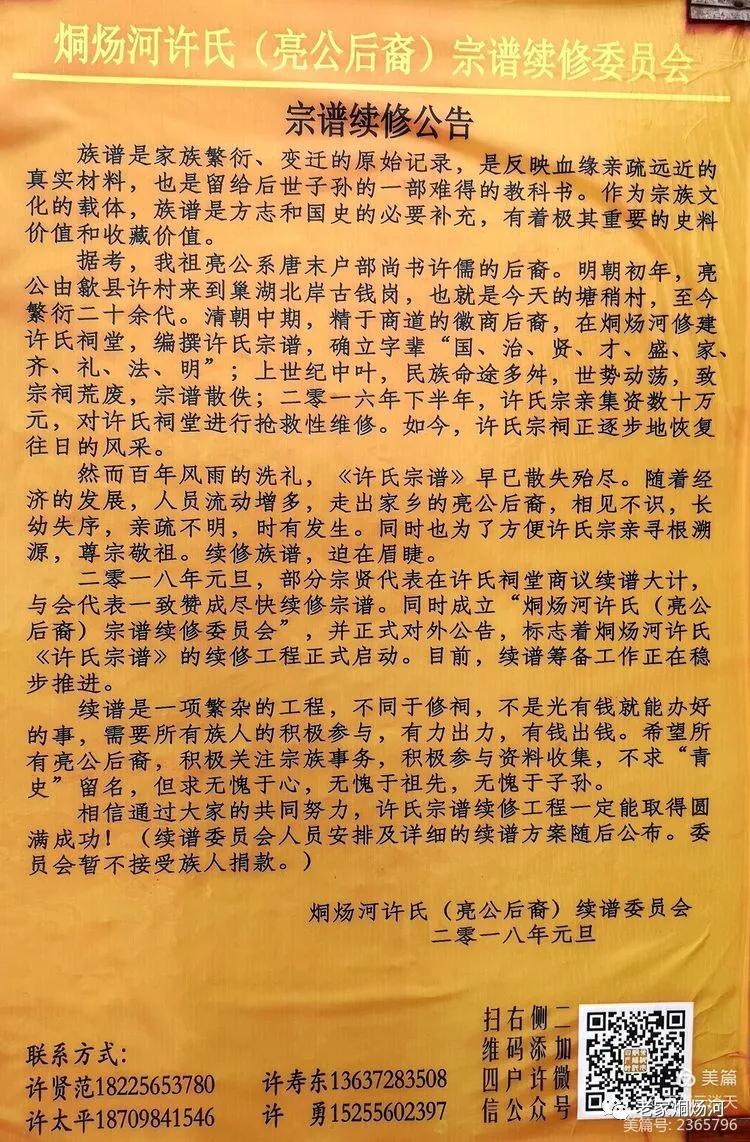 烔炀河许氏（亮公后裔）宗谱续修委员会
宗谱续修公告
族谱是家族繁衍、变迁的原始记录，是反映血缘亲疏远近的
真实材料，也是留给后世子孙的一部难得的教科书。作为宗族文
化的载体，族谱是方志和国史的必要补充，有着极其重要的史料
价值和收藏价值。
据考，我祖亮公系唐末户部尚书许儒的后裔。明朝初年，亮
公由歙县许村来到巢湖北岸古钱岗，也就是今天的塘稍村，至今
繁衍二十余代。清朝中期，精于商道的徽商后裔，在烔炀河修建
许氏祠堂，编撰许氏宗谱，确立字辈“国、治、贤、才、盛、家、
齐、礼、法、明”；上世纪中叶，民族命途多舛，世势动荡，致
宗祠荒废，宗谱散佚；二零一六年下半年，许氏宗亲集资数十万
元，对许氏祠堂进行抢救性维修。如今，许氏宗祠正逐步地恢复
往日的风采。
然而百年风雨的洗礼，《许氏宗谱》早已散失殆尽。随着经
济的发展，人员流动增多，走出家乡的亮公后裔，相见不识，长
幼失序，亲疏不明，时有发生。同时也为了方便许氏宗亲寻根溯
源，尊宗敬祖。续修族谱，迫在眉睫。
二零一八年元旦，部分宗贤代表在许氏祠堂商议续谱大计，
与会代表一致赞成尽快续修宗谱。同时成立“烔炀河许氏（亮公
后裔）宗谱续修委员会”，并正式对外公告，标志着烔炀河许氏
《许氏宗谱》的续修工程正式启动。目前，续谱筹备工作正在稳
步推进。
续谱是一项繁杂的工程，不同于修祠，不是光有钱就能办好
的事，需要所有族人的积极参与，有力出力，有钱出钱。希望所
有亮公后裔，积极关注宗族事务，积极参与资料收集，不求“青
史”留名，但求无愧于心，无愧于祖先，无愧于子孙。
相信通过大家的共同努力，许氏宗谱续修工程一定能取得圆
满成功！（续谱委员会人员安排及详细的续谱方案随后公布。委
员会暂不接受族人捐款。）
烔炀河许氏（亮公后裔）续谱委员会
二零一八年元旦
联系方式：
许贤范18225653780 许寿东13637283508
许太平18709841546 许 勇15255602397
扫右侧二
维码添加
四户许微
信公众号
美篇
老家烔炀河
美篇号：2365796